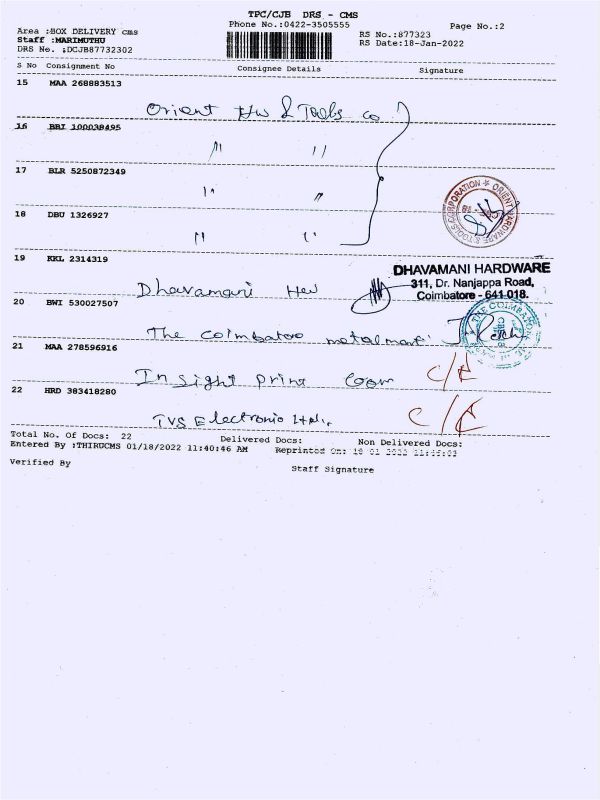 TPC/CJB DRS - CMS
Phone No.:0422-3505555
Page No.:2
Area :BOX DELIVERY cms
RS No.:877323
Staff :MARIMUTHU
RS Date:18-Jan-2022
DRS No. :DCJB87732302
S No Consignment No Consignee Details Signature
15 MAA 268883513
Orient Hw & Tools co
16 BBI 100038495
" "
17 BLR 5250872349
" "
18 DBU 1326927
" "
ORIENT HARDWARE & TOOLS CORPORATION
19 KKL 2314319
DHAVAMANI HARDWARE
311, Dr. Nanjappa Road,
Coimbatore - 641 018.
Dhavamani Hw
20 BWI 530027507
The Coimbatore metalmart
THE COIMBATORE
21 MAA 278596916
Insight Print Com C/C
22 HRD 383418280
TVS Electronic Ltd., C/C
Total No. Of Docs: 22 Delivered Docs: Non Delivered Docs:
Entered By :THIRUCMS 01/18/2022 11:40:46 AM Reprinted On:
Verified By Staff Signature